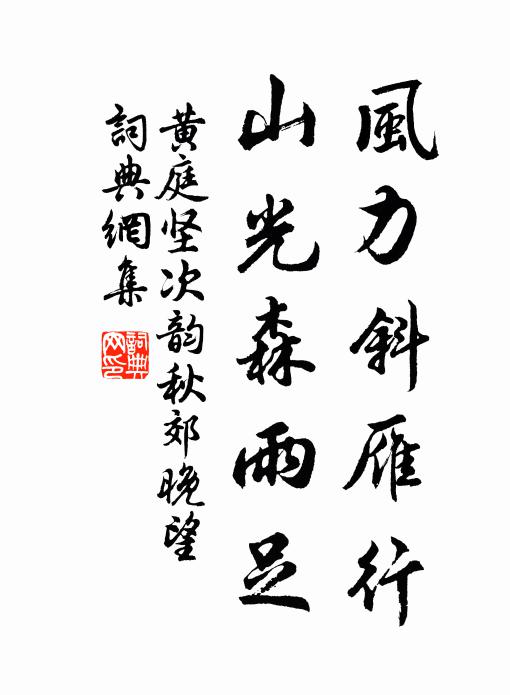 風力斜雁行
山光森雨足
黄庭坚次韵秋郊晚望
詞典網集
詞典網印